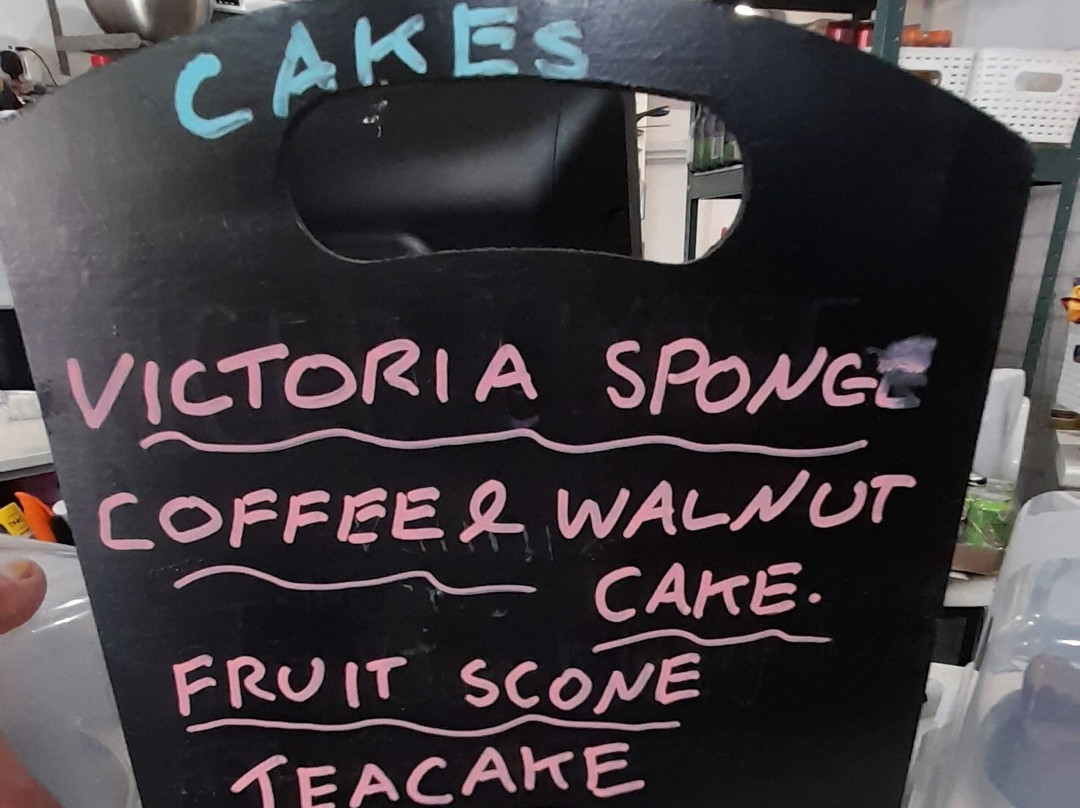 CAKES
VICTORIA SPONGE
COFFEE & WALNUT
CAKE.
FRUIT SCONE
TEACAKE